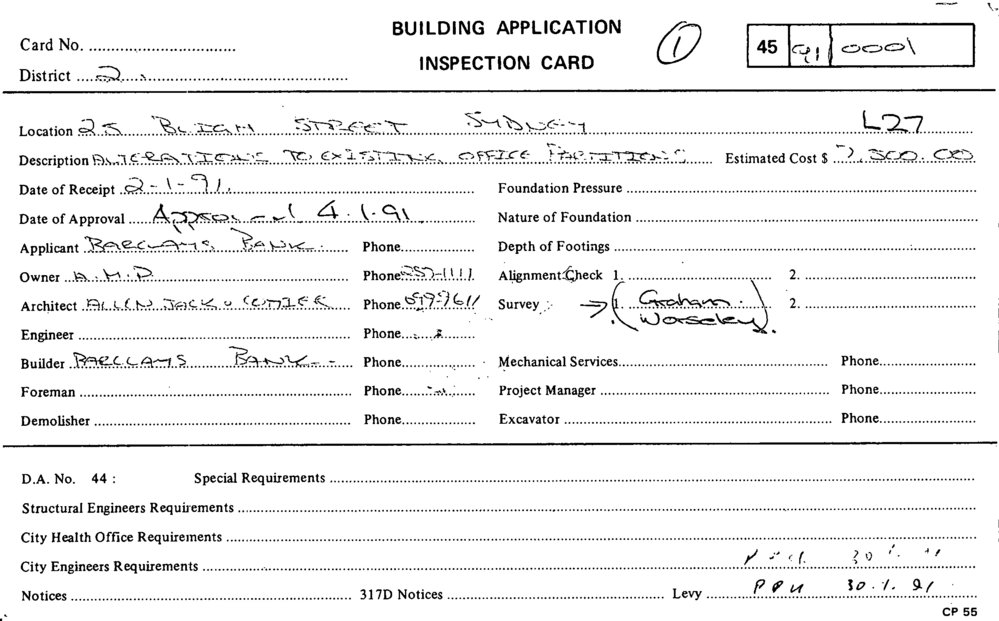 BUILDING APPLICATION
INSPECTION CARD
Card No.
District 2
① 45 91 0001
Location 25 BLIGH STREET SYDNEY L27
Description ALTERATIONS TO EXISTING OFFICE PARTITIONS Estimated Cost $ 7,500.00
Date of Receipt 2-1-91. Foundation Pressure
Date of Approval Approved 4.1.91 Nature of Foundation
Applicant BARCLAYS BANK. Phone Depth of Footings
Owner A.M.P Phone 257-1111 Alignment Check 1. 2.
Architect ALLEN JACK & COTTIER Phone Survey → 1. Graham 2.
Worseley.
Engineer Phone
Builder BARCLAYS BANK Phone Mechanical Services Phone
Foreman Phone Project Manager Phone
Demolisher Phone Excavator Phone
D.A. No. 44 : Special Requirements
Structural Engineers Requirements
City Health Office Requirements
City Engineers Requirements
Notices 317D Notices Levy 30.1.91
CP 55